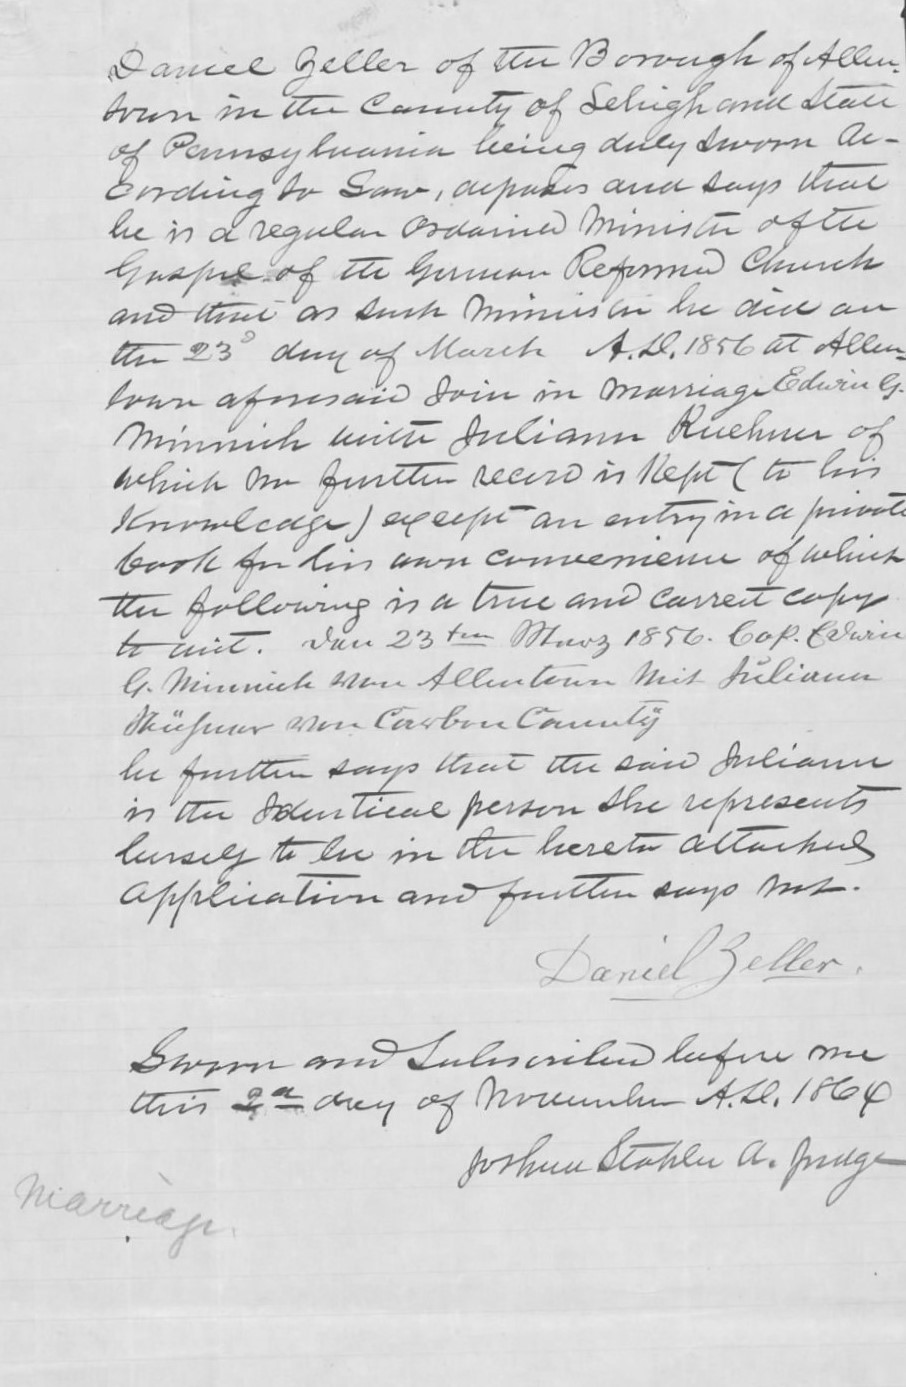 Daniel Zeller of the Borough of Allen-
town in the County of Lehigh and State
of Pennsylvania being duly sworn ac-
cording to Law, deposes and says that
he is a regular Ordained Minister of the
Gospel of the German Reformed Church
and that as such Minister he did on
the 23d day of March A.D. 1856 at Allen-
town aforesaid Join in Marriage Edwin G.
Minnich with Juliann Kuehner of
which no further record is Kept (to his
Knowledge) except an entry in a private
book for his own convenience of which
the following is a true and correct copy
to wit. Den 23ten März 1856. Cop. Edwin
G. Minnich von Allentown mit Juliann
Kühner von Carbon County
he further says that the said Juliann
is the Identical person she represents
herself to be in the hereto attached
application and further says not.
Daniel Zeller.
Sworn and Subscribed before me
this 2d day of November A.D. 1864
Joshua Stahler A. Judge
Marriage.